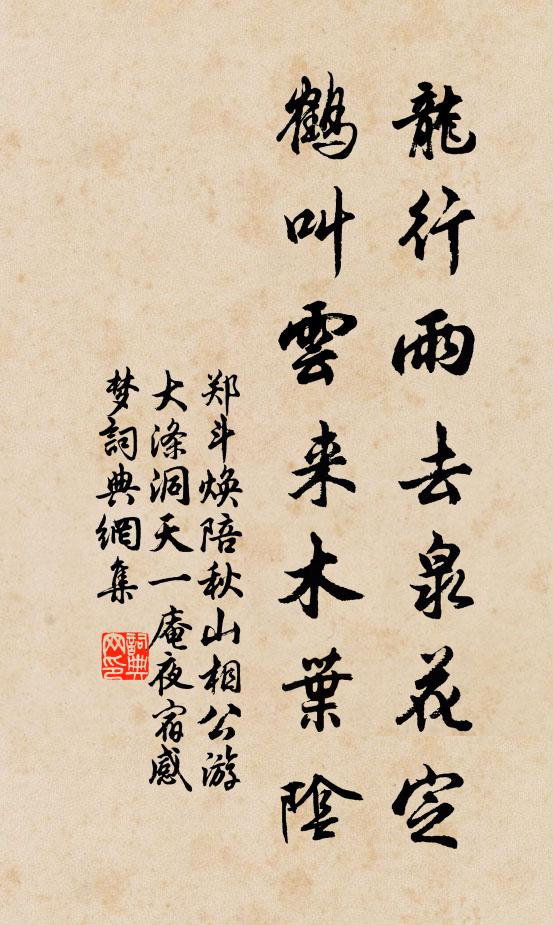 龍行雨去泉花定
鶴叫雲来木葉陰
郑斗焕陪秋山相公游
大涤洞天一庵夜宿感
梦詞典網集
詞典
网印